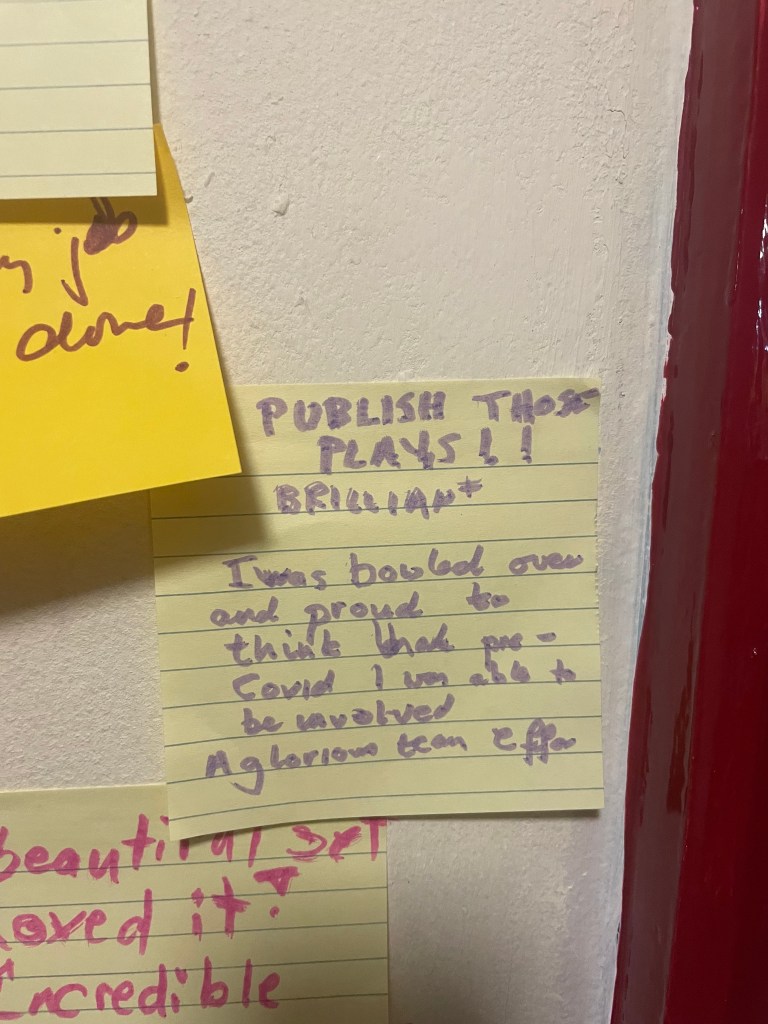 job
done!
PUBLISH THOSE
PLAYS!!
BRILLIANT
I was bowled over
and proud to
think that pre-
Covid I was able to
be involved
A glorious team effo
beautiful set
loved it!
Incredible